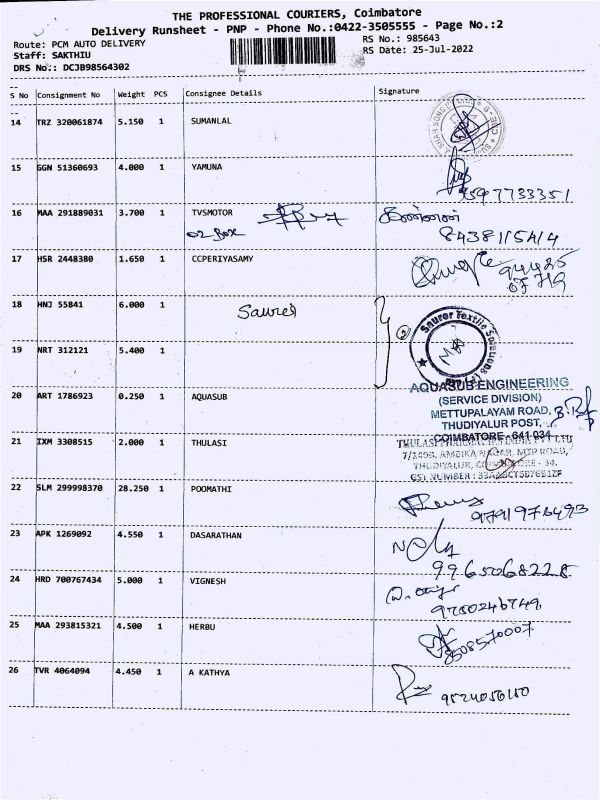 THE PROFESSIONAL COURIERS, Coimbatore
Delivery Runsheet - PNP - Phone No.:0422-3505555 - Page No.:2
Route: PCM AUTO DELIVERY
RS No.: 985643
Staff: SAKTHIU
RS Date: 25-Jul-2022
DRS No.: DCJB98564302
S No Consignment No Weight PCS Consignee Details Signature
14 TRZ 320061874 5.150 1 SUMANLAL
15 GGN 51360693 4.000 1 YAMUNA
9597733351
16 MAA 291889031 3.700 1 TVSMOTOR
02 Box
கண்ணன்
8438115414
17 HSR 2448380 1.650 1 CCPERIYASAMY
94425
07719
18 HNJ 55841 6.000 1
Saurer
Saurer Textile Solutions
19 NRT 312121 5.400 1
20 ART 1786923 0.250 1 AQUASUB
AQUASUB ENGINEERING
(SERVICE DIVISION)
METTUPALAYAM ROAD,
THUDIYALUR POST,
COIMBATORE - 641 034
21 IXM 3308515 2.000 1 THULASI
7/249B, AMBIKA NAGAR, MTP ROAD,
THUDIYALUR, COIMBATORE - 34.
GST NUMBER :
22 SLM 299998370 28.250 1 POOMATHI
9791976493
23 APK 1269092 4.550 1 DASARATHAN
9965068228
24 HRD 700767434 5.000 1 VIGNESH
9750246749
25 MAA 293815321 4.500 1 HERBU
8508570007
26 TVR 4064094 4.450 1 A KATHYA
9524050150